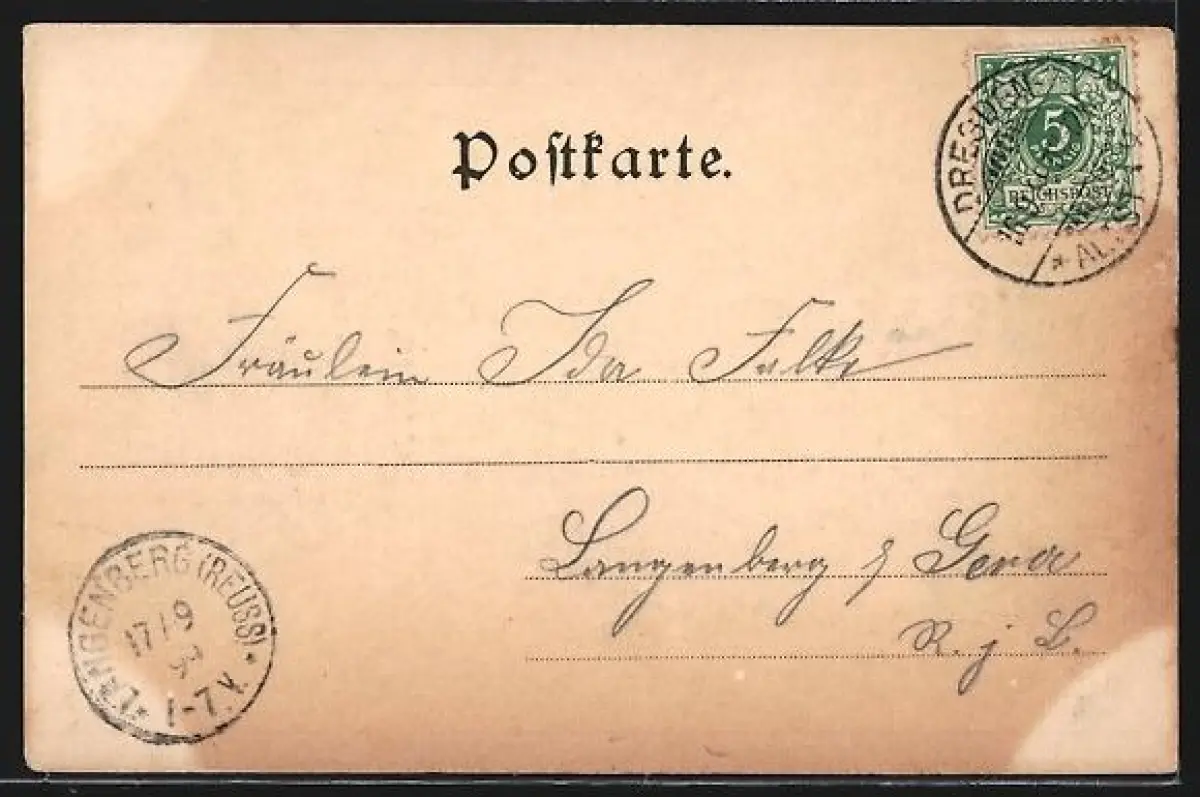 Postkarte.
5
REICHSPOST
DRESDEN
* ALTST.
Fräulein Ida Falke
Langenberg b/ Gera
R. j. L.
*LANGENBERG (REUSS)*
17/9
1-7.V.